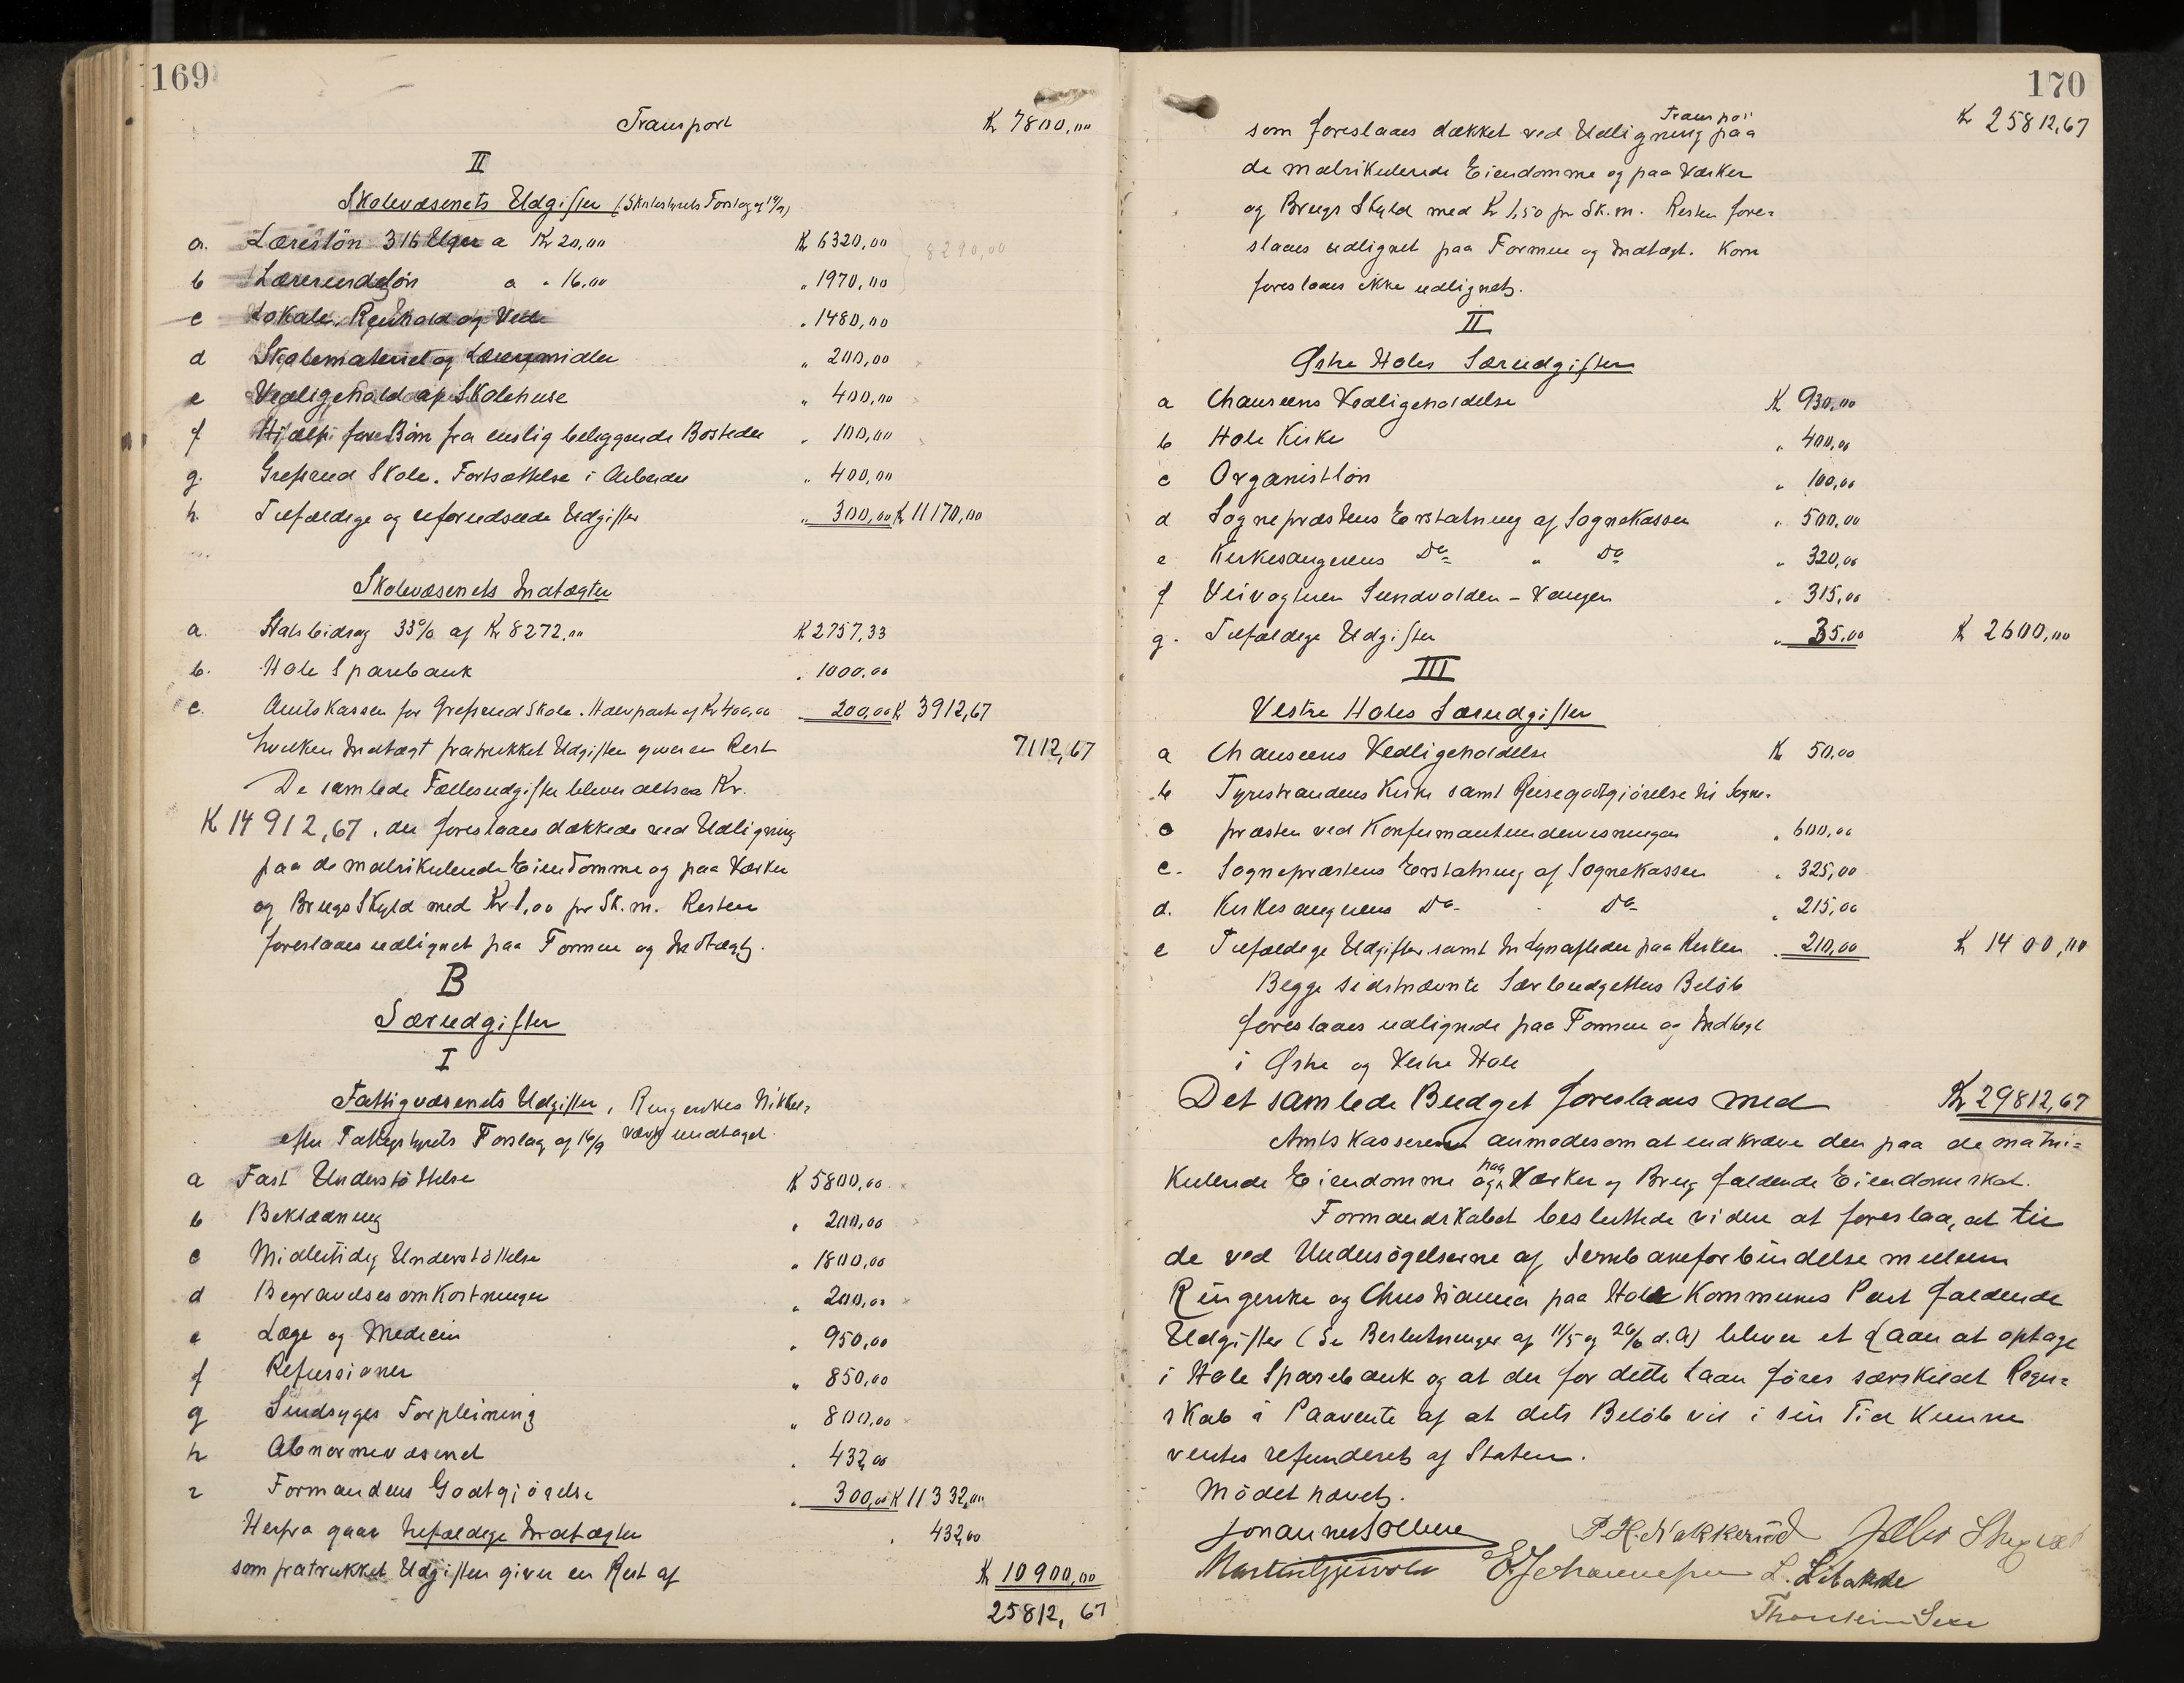 169
Transport Kr 7800,00
II
Skolevæsenets Udgifter (Skolestyrets Forslag af 19/9)
a. Lærerløn 316 Uger a Kr 20,00 Kr 6320,00 8290,00
b Lærerindeløn a " 16,00 " 1970,00
c Lokale, Renhold og Ved " 1480,00
d Skolemateriel og Læremidler " 200,00
e Vedligehold af Skolehuse " 400,00
f Hjælp for Børn fra enslig beliggende Bosteder " 100,00
g. Grefsrud Skole. Fortsættelse i Arbeidet " 400,00
h. Tilfældige og uforudseede Udgifter " 300,00 Kr 11170,00
Skolevæsenets Indtægter
a. Statsbidrag 33% af Kr 8272,00 Kr 2757,33
b. Hole Sparebank " 1000,00
c. Amtskassen for Grefsrud Skole. Halvparten af Kr 400,00 200,00 Kr 3912,67
hvilken Indtægt fratrukket Udgiften giver en Rest 7112,67
De samlede Fællesudgifter bliver altsaa Kr.
Kr 14912,67, der foreslaaes dækkede ved Udligning
paa de matrikulerede Eiendomme og paa Værker
og Brugs Skyld med Kr 1,00 pr Sk.m. Resten
foreslaaes udlignet paa Formue og Indtægt.
B
Særudgifter
I
Fattigvæsenets Udgifter, Ringerikes Nikkel-
efter Fattigstyrets Forslag af 16/9 værk undtaget.
a Fast Understøttelse Kr 5800,00
b Beklædning " 200,00
c Midlertidig Understøttelse " 1800,00
d Begravelsesomkostninger " 200,00
e Læge og Medicin " 950,00
f Refusioner " 850,00
g Sindsyges Forpleining " 800,00
h Abnormevæsenet " 432,00
i Formandens Godtgjørelse " 300,00 Kr 11332,00
Herfra gaar tilfældige Indtægter " 432,00
som fratrukket Udgiften giver en Rest af Kr 10900,00
25812,67
170
Transport Kr 25812,67
som foreslaaes dækket ved Udligning paa
de matrikulerede Eiendomme og paa Værker
og Brugs Skyld med Kr 1,50 pr Sk.m. Resten fore-
slaaes udlignet paa Formue og Indtægt. Korn
foreslaaes ikke udlignet.
II
Østre Holes Særudgifter
a Chauseens Vedligeholdelse Kr 930,00
b Hole Kirke " 400,00
c Organistløn " 100,00
d Sogneprestens Erstatning af Sognekassen " 500,00
e Kirkesangerens Do " Do " 320,00
f Veivogteren Sundvolden - Vangen " 315,00
g. Tilfældige Udgifter " 35,00 Kr 2600,00
III
Vestre Holes Særudgifter
a Chauseens Vedligeholdelse Kr 50,00
b Tyristrandens Kirke samt Reisegodtgjørelse til Sogne-
præsten ved Konfirmantundervisningen " 600,00
c. Sognepræstens Erstatning af Sognekassen " 325,00
d. Kirkesangerens Do " Do " 215,00
e Tilfældige Udgifter samt Lynafleder paa Kirken " 210,00 Kr 1400,00
Begge sidstnævnte Særbudgetters Beløb
foreslaaes udlignede paa Formue og Indtægt
i Østre og Vestre Hole
Det samlede Budget foreslaaes med Kr 29812,67
Amtskassereren anmodes om at indkræve den paa de matri-
kulerede Eiendomme og paa Værker og Brug faldende Eiendomsskat.
Formandskabet besluttede videre at foreslaa, at til
de ved Undersøgelserne af Jernbaneforbindelse mellem
Ringerike og Christiania paa Hole Kommunes Part faldende
Udgifter (Se Beslutninger af 11/5 og 26/6 d.A) bliver et Laan at optage
i Hole Sparebank og at der for dette Laan føres særskildt Regn-
skab i Paavente af at dets Beløb vil i sin Tid kunne
ventes refunderet af Staten.
Mødet hævet.
Johannes Sollien P.H. Nakkerud
Martin Gjesvold E Johannesen L. Libakke
Thorstein